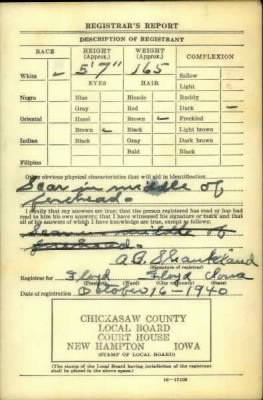 REGISTRAR'S REPORT
DESCRIPTION OF REGISTRANT
RACE HEIGHT (Approx.) WEIGHT (Approx.) COMPLEXION
5'7" 165
White Sallow
EYES HAIR Light
Negro Blue Blonde Ruddy
Gray Red Dark
Oriental Hazel Brown Freckled
Brown Black Light brown
Indian Black Gray Dark brown
Bald Black
Filipino
Other obvious physical characteristics that will aid in identification
Scar in middle of
forehead.
I certify that my answers are true; that the person registered has read or has had
read to him his own answers; that I have witnessed his signature or mark and that
all of his answers of which I have knowledge are true, except as follows:
Scar in middle of
forehead.
A.G. Shankland
(Signature of registrar)
Registrar for Floyd Floyd Iowa
(Precinct) (Ward) (City or county) (State)
Date of registration October 16-1940
CHICKASAW COUNTY
LOCAL BOARD
COURT HOUSE
NEW HAMPTON IOWA
(STAMP OF LOCAL BOARD)
(The stamp of the Local Board having jurisdiction of the registrant shall be
placed in the above space.)